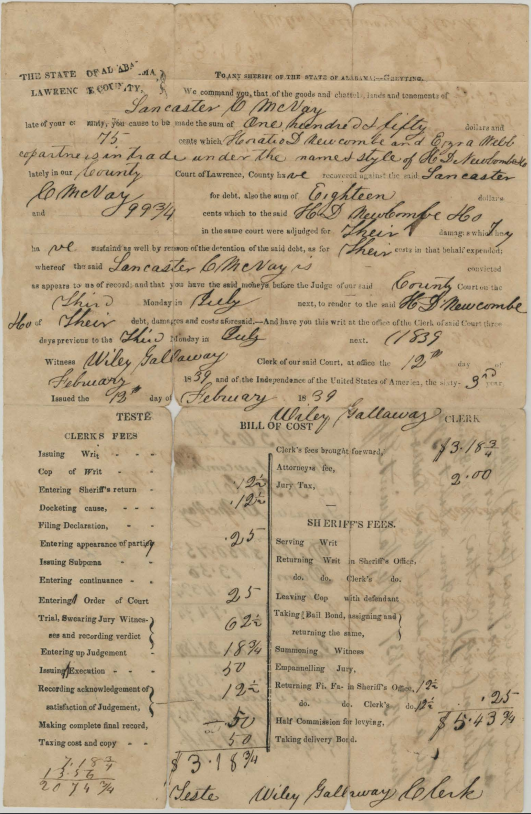 THE STATE OF ALABAMA,
LAWRENCE COUNTY,
TO ANY SHERIFF OF THE STATE OF ALABAMA—GREETING.
We command you, that of the goods and chattels, lands and tenements of
Lancaster C McVay
late of your county, you cause to be made the sum of One hundred & fifty dollars and
75 cents which Horatio D Newcombe and Ezra Webb
copartners in trade under the name & style of H D Newcombe & Co
lately in our County Court of Lawrence, County have recovered against the said Lancaster
C McVay for debt, also the sum of Eighteen dollars
and 99 3/4 cents which to the said H D Newcombe & Co
in the same court were adjudged for Their damages which they
have sustained as well by reason of the detention of the said debt, as for Their costs in that behalf expended;
whereof the said Lancaster C McVay is convicted
as appears to us of record, and that you have the said moneys before the Judge of our said County Court on the
Third Monday in July next, to render to the said H D Newcombe
& Co of Their debt, damages and costs aforesaid.—And have you this writ at the office of the Clerk of said Court three
days previous to the Third Monday in July next. (1839
Witness Wiley Gallaway Clerk of our said Court, at office the 12th day of
February 1839, and of the Independence of the United States of America, the sixty-3rd year
Issued the 12th day of February 1839
Wiley Gallaway CLERK
TESTE
BILL OF COST
CLERK'S FEES
Issuing Writ
Cop of Writ
Entering Sheriff's return .12 1/2
Docketing cause, .12 1/2
Filing Declaration,
Entering appearance of party .25
Issuing Subpœna
Entering continuance
Entering Order of Court 25
Trial, Swearing Jury Witnesses and recording verdict 62 1/2
Entering up Judgement 18 3/4
Issuing Execution 50
Recording acknowledgement of satisfaction of Judgement, 12 1/2
Making complete final record, 50
Taxing cost and copy 50
$3.18 3/4
7.18 3/4
13.56
20 74 3/4
Clerk's fees brought forward, $3.18 3/4
Attorney's fee, 2.00
Jury Tax,
SHERIFF'S FEES.
Serving Writ
Returning Writ in Sheriff's Office,
do. do. Clerk's do.
Leaving Cop with defendant
Taking Bail Bond, assigning and returning the same,
Summoning Witness
Empannelling Jury,
Returning Fi. Fa. in Sheriff's Office, 12 1/2
do. do. Clerk's do. 12 1/2 .25
Half Commission for levying, $5.43 3/4
Taking delivery Bond.
Teste Wiley Gallaway Clerk